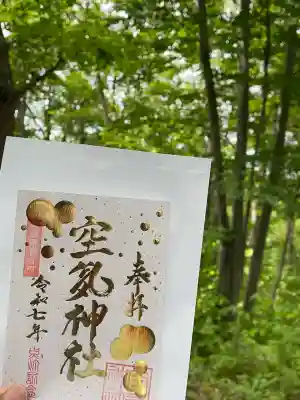 奉拝
空気神社
令和七年